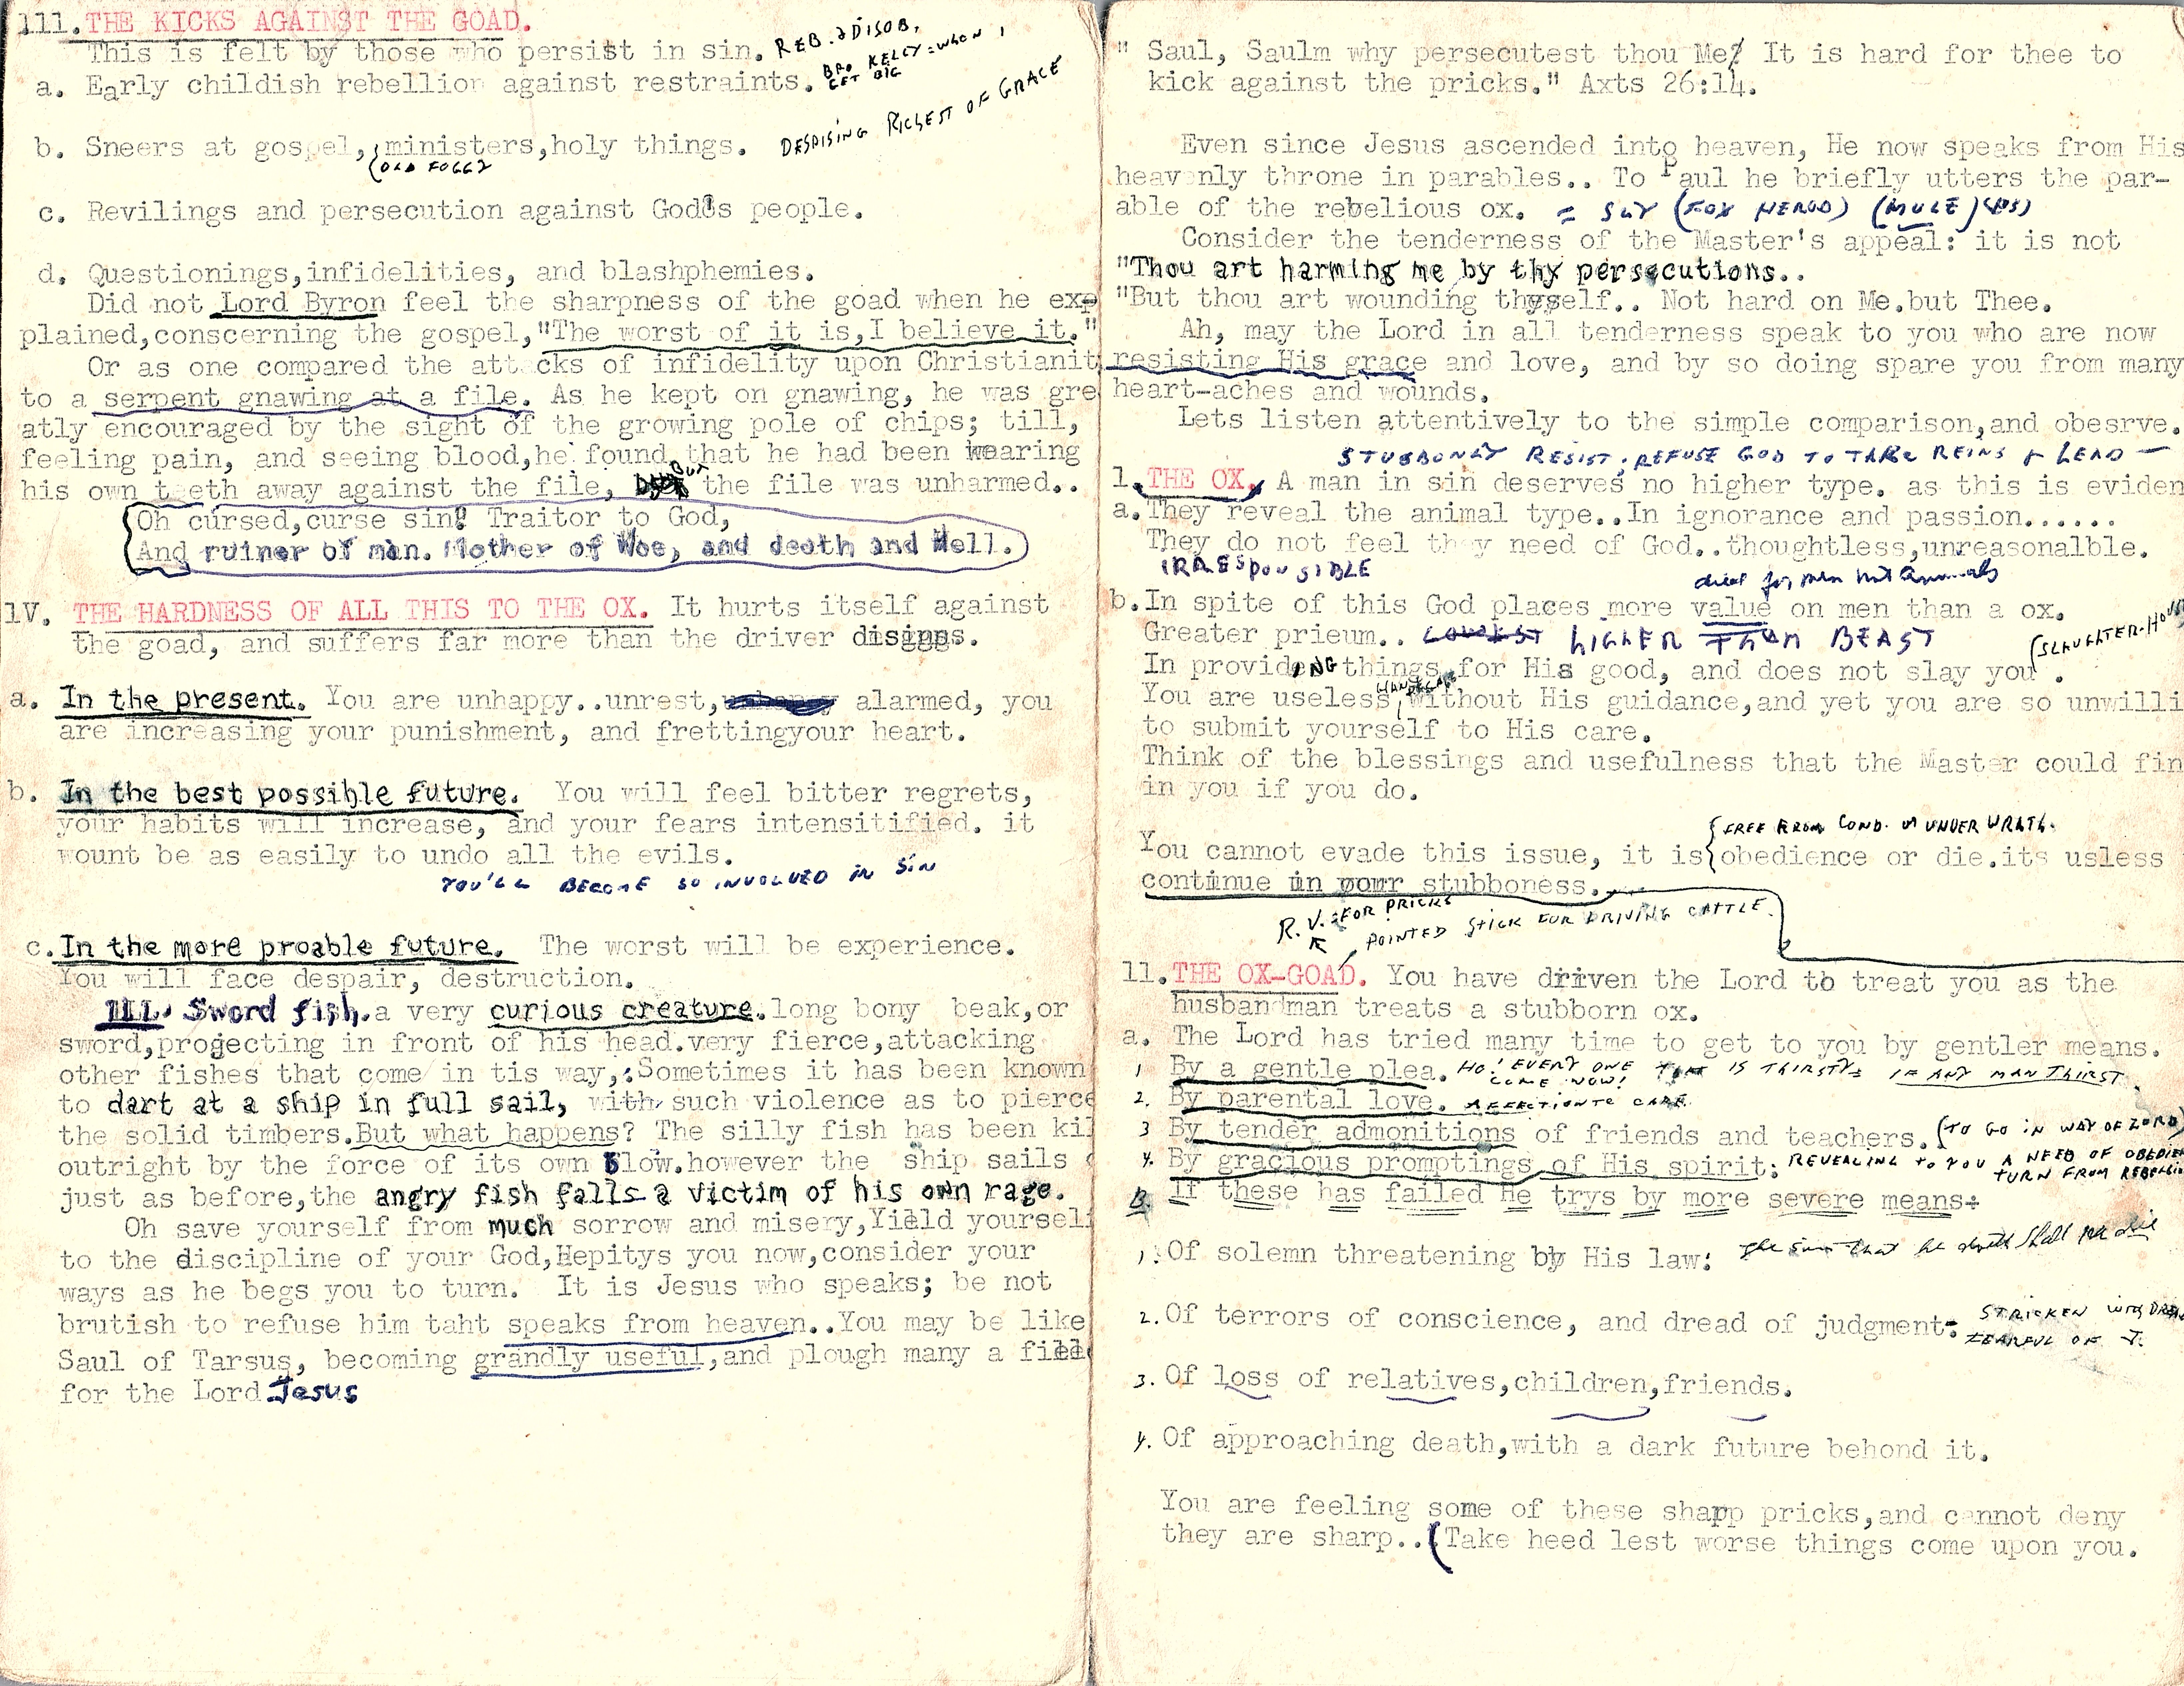 111. THE KICKS AGAINST THE GOAD.
This is felt by those who persist in sin. REB. & DISOB.
BRO KELLY = WHON I
GET BIG
a. Early childish rebellion against restraints.
b. Sneers at gospel, ministers,holy things. DESPISING RICHEST OF GRACE
(OLD FOGGY
c. Revilings and persecution against God's people.
d. Questionings,infidelities, and blashphemies.
Did not Lord Byron feel the sharpness of the goad when he exp
plained,conscerning the gospel,"The worst of it is,I believe it."
Or as one compared the attacks of infidelity upon Christianit
to a serpent gnawing at a file. As he kept on gnawing, he was gre
atly encouraged by the sight of the growing pole of chips; till,
feeling pain, and seeing blood,he found that he had been wearing
his own teeth away against the file, BUT the file was unharmed..
Oh cursed,curse sin! Traitor to God,
And ruiner of man. Mother of Woe, and death and Hell.
1V. THE HARDNESS OF ALL THIS TO THE OX. It hurts itself against
the goad, and suffers far more than the driver
a. In the present. You are unhappy..unrest, alarmed, you
are increasing your punishment, and frettingyour heart.
b. In the best possible future. You will feel bitter regrets,
your habits will increase, and your fears intensitified. it
wount be as easily to undo all the evils.
YOU'LL BECOME SO INVOLVED IN SIN
c. In the more proable future. The worst will be experience.
You will face despair, destruction.
ILL. Sword fish. a very curious creature. long bony beak,or
sword,projecting in front of his head.very fierce,attacking
other fishes that come in tis way,:Sometimes it has been known
to dart at a ship in full sail, with such violence as to pierce
the solid timbers.But what happens? The silly fish has been kil
outright by the force of its own Blow.however the ship sails
just as before,the angry fish falls a victim of his own rage.
Oh save yourself from much sorrow and misery,Yield yourself
to the discipline of your God,Hepitys you now,consider your
ways as he begs you to turn. It is Jesus who speaks; be not
brutish to refuse him taht speaks from heaven..You may be like
Saul of Tarsus, becoming grandly useful,and plough many a field
for the Lord Jesus
" Saul, Saulm why persecutest thou Me? It is hard for thee to
kick against the pricks." Axts 26:14.
Even since Jesus ascended into heaven, He now speaks from His
heavenly throne in parables.. To Paul he briefly utters the par-
able of the rebelious ox. = SLY (FOX HEROD) (MULE) (PS)
Consider the tenderness of the Master's appeal: it is not
"Thou art harming me by thy persecutions..
"But thou art wounding thyself.. Not hard on Me.but Thee.
Ah, may the Lord in all tenderness speak to you who are now
resisting His grace and love, and by so doing spare you from many
heart-aches and wounds.
Lets listen attentively to the simple comparison,and obesrve.
STUBBONLY RESIST, REFUSE GOD TO TAKE REINS & LEAD —
1. THE OX, A man in sin deserves no higher type. as this is eviden
a. They reveal the animal type..In ignorance and passion......
They do not feel they need of God..thoughtless,unreasonalble.
IRRESPONSIBLE
died for men not animals
b. In spite of this God places more value on men than a ox.
Greater prieum.. LOWEST HIGHER THAN BEAST
(SLAUGHTER-HOUSE
In provideING things for His good, and does not slay you .
You are useless without His guidance,and yet you are so unwilli
to submit yourself to His care.
Think of the blessings and usefulness that the Master could fin
in you if you do.
{FREE FROM COND. OR UNDER WRATH.
You cannot evade this issue, it is obedience or die.its usless
continue in your stubboness.
R.V. = FOR PRICKS
POINTED STICK FOR DRIVING CATTLE.
11. THE OX-GOAD. You have driven the Lord to treat you as the
husbandman treats a stubborn ox.
a. The Lord has tried many time to get to you by gentler means.
1 By a gentle plea. HO! EVERY ONE THAT IS THIRSTY = IF ANY MAN THIRST.
COME NOW!
2. By parental love. AFFECTIONTE CARE
3 By tender admonitions of friends and teachers. (TO GO IN WAY OF LORD)
4. By gracious promptings of His spirit: REVEALING TO YOU A NEED OF OBEDIEN
TURN FROM REBELLIO
B. If these has failed He trys by more severe means:
1. Of solemn threatening by His law: The soul that he sinneth shall he die
2. Of terrors of conscience, and dread of judgment: STRICKEN WITH DREAD
FEARFUL OF J.
3. Of loss of relatives,children,friends.
4. Of approaching death,with a dark future behond it.
You are feeling some of these sharp pricks,and cannot deny
they are sharp..(Take heed lest worse things come upon you.